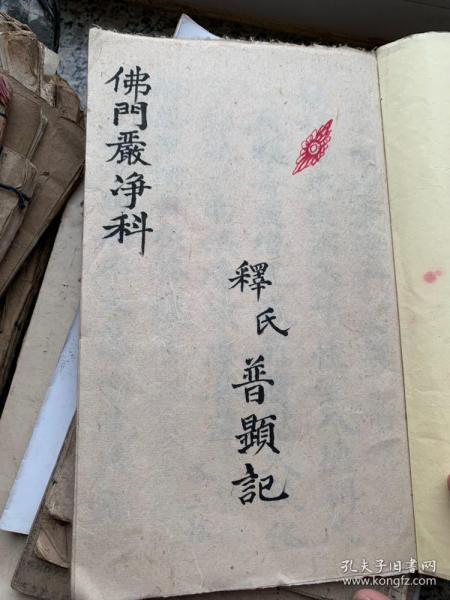 佛門嚴净科
釋氏普顯記
孔夫子旧书网
www.kongfz.com